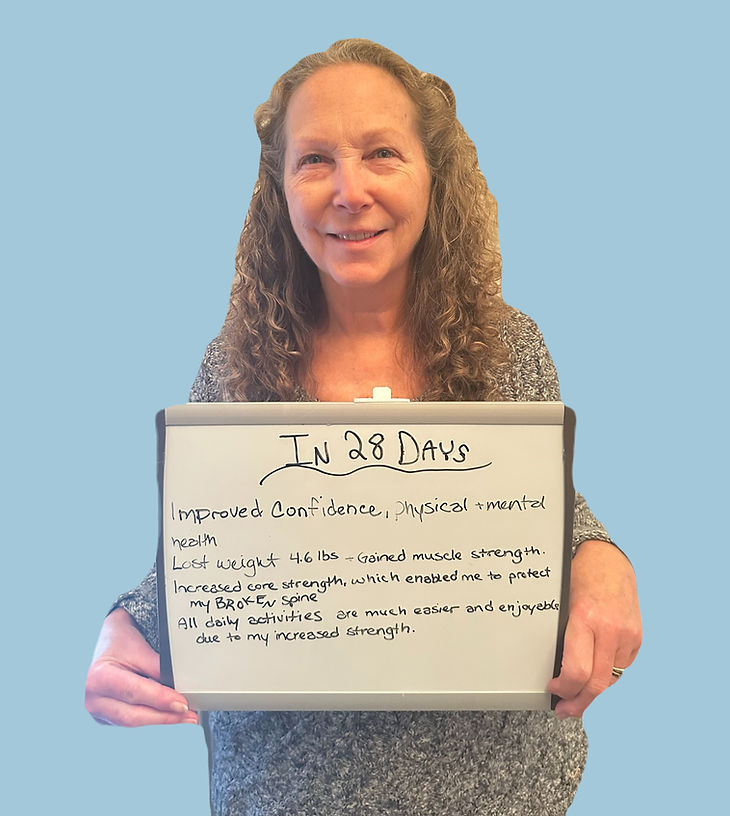 IN 28 DAYS
Improved Confidence, physical + mental
health
Lost weight 4.6 lbs - Gained muscle strength.
Increased core strength, which enabled me to protect
my BROKEN spine
All daily activities are much easier and enjoyable
due to my increased strength.